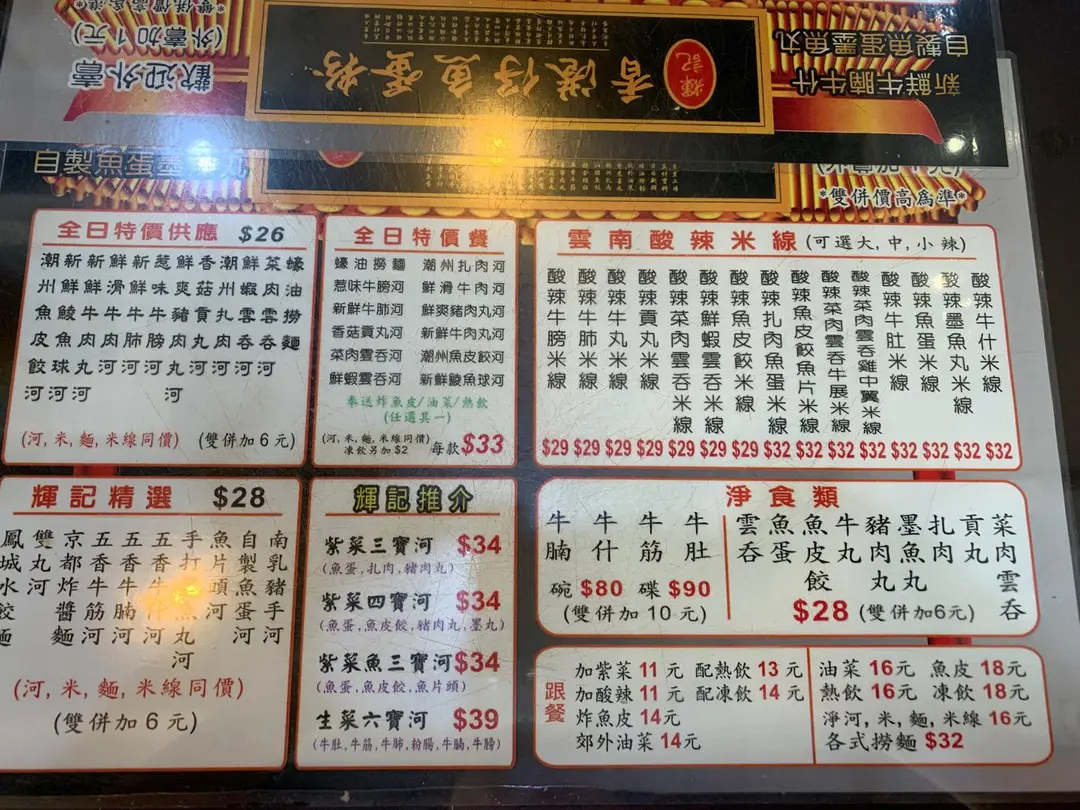 歡迎外賣
(外賣加1元)
*雙併價高為準*
輝記
香港仔魚蛋粉
自製魚蛋墨魚丸
新鮮牛腩牛什
自製魚蛋墨魚丸
*雙併價高為準*
全日特價供應 $26
潮州魚皮餃河
新鮮鯪魚球河
新鮮牛肉丸河
鮮滑牛肉河
新鮮牛肺河
惹味牛膀河
鮮爽豬肉丸河
香菇貢丸河
潮州扎肉河
鮮蝦雲吞河
菜肉雲吞河
蠔油撈麵
(河,米,麵,米線同價) (雙併加6元)
全日特價餐
蠔油撈麵 潮州扎肉河
惹味牛膀河 鮮滑牛肉河
新鮮牛肺河 鮮爽豬肉丸河
香菇貢丸河 新鮮牛肉丸河
菜肉雲吞河 潮州魚皮餃河
鮮蝦雲吞河 新鮮鯪魚球河
奉送炸魚皮/油菜/熱飲
(任選其一)
(河,米,麵,米線同價)
凍飲另加$2
每款$33
雲南酸辣米線(可選大,中,小辣)
酸辣牛膀米線 $29
酸辣牛肺米線 $29
酸辣牛丸米線 $29
酸辣貢丸米線 $29
酸辣菜肉雲吞米線 $29
酸辣鮮蝦雲吞米線 $29
酸辣魚皮餃米線 $29
酸辣扎肉魚蛋米線 $32
酸辣魚皮餃魚片米線 $32
酸辣菜肉雲吞牛展米線 $32
酸辣菜肉雲吞雞中翼米線 $32
酸辣牛肚米線 $32
酸辣魚蛋米線 $32
酸辣墨魚丸米線 $32
酸辣牛什米線 $32
輝記精選 $28
鳳城水餃麵
雙丸河
京都炸醬麵
五香牛筋河
五香牛腩河
五香牛河
手打魚丸河
魚片頭河
自製魚蛋河
南乳豬手河
(河,米,麵,米線同價)
(雙併加6元)
輝記推介
紫菜三寶河 $34
(魚蛋,扎肉,豬肉丸)
紫菜四寶河 $34
(魚蛋,魚皮餃,豬肉丸,墨丸)
紫菜魚三寶河 $34
(魚蛋,魚皮餃,魚片頭)
生菜六寶河 $39
(牛肚,牛筋,牛肺,粉腸,牛腩,牛膀)
淨食類
牛腩
牛什
牛筋
牛肚
碗 $80 碟 $90
(雙併加10元)
雲吞
魚蛋
魚皮餃
牛丸
豬肉丸
墨魚丸
扎肉
貢丸
菜肉雲吞
$28 (雙併加6元)
跟餐
加紫菜 11元 配熱飲 13元
加酸辣 11元 配凍飲 14元
炸魚皮 14元
郊外油菜 14元
油菜 16元 魚皮 18元
熱飲 16元 凍飲 18元
淨河,米,麵,米線 16元
各式撈麵 $32